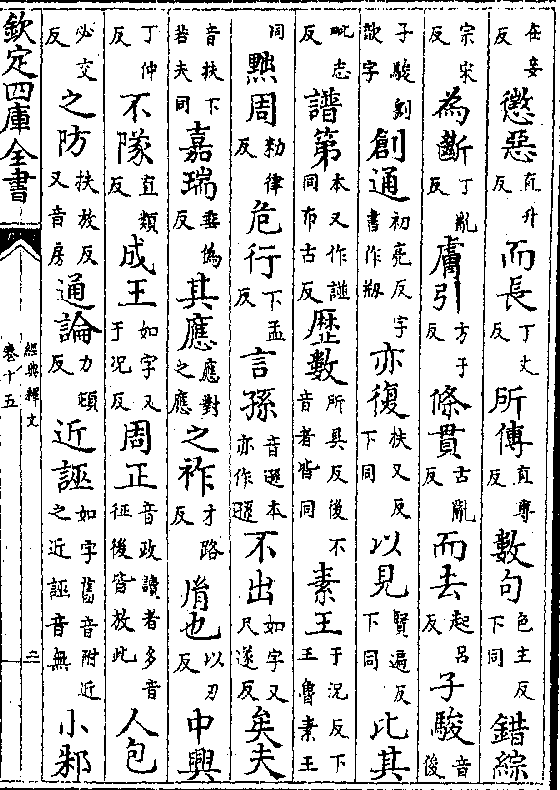 在妾反懲惡直升反而長丁丈反所傳直專反數句色主反下同錯綜
宗宋反為斷丁亂反膚引方于反條貫古亂反而去起呂反子駿音俊
子駿劉歆字創通初亮反字書作刱亦復扶又反下同以見賢遍反下同比其
毗志反譜第本又作諩同布古反歴數所具反後不音者皆同素王于況反下王魯素王
同黜周勑律反危行下孟反言孫音遜本亦作遜不出如字又尺遂反矣夫
音扶下若夫同嘉瑞垂偽反其應應對之應之祚才路反胤也以刃反中興
丁仲反不隊直類反成王如字又于況反周正音政讀者多音征後皆放此人包
必交反之防扶放反又音房通論力頓反近誣如字舊音附近之近誣音無小邾
欽定四庫全書
經典釋文
卷十五
二